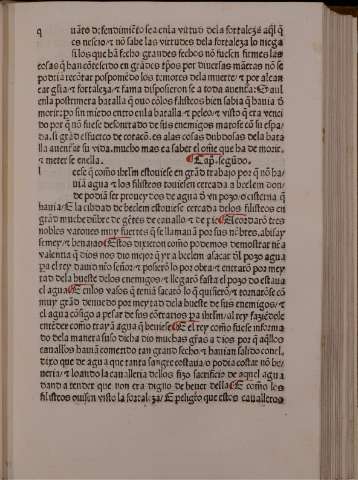 q uãto defendimiẽto sea enla virtud dela fortaleza aq̃l q̃
es nescio ⁊ nõ sabe las virtudes dela fortaleza lo niega
si los que hã fecho grandes fechos nõ fuesen firmes las
cosas q̃ han en grãdes por diuersas nõ se
podriã recõtar posponiẽdo los temores dela muerte ⁊ por alcan
çar gl̃ia ⁊ fortaleza ⁊ fama disposieron se a toda auenta
enla postrimera batalla q̃ ouo cõlos filisteos bien sabia q̃ hauia d̃
morir: po sin miedo entro enla batalla ⁊ peleo ⁊ visto q̃ era venci
do por q̃ nõ fuese desonrrado de sus enemigos matose cõ su espa
da. si grãd esfuerço de coraçõ. es alas cosas dubdosas dela bata
lla auenturar su vida. mucho mas ea saber el oñie que ha de morir.
⁊ meter se enella. Cap. segũdo.
l eese q̃ como ihrlm̃ estouiese en grãd trabajo por q̃ nõ ha
uiã agua ⁊ los filisteos touiesen cercada a beelem don
de podiã ser proueydos de agua d̃ vn pozo o cisterna q̃
hauia. E la cibdad de beelem estouiese cercada delos filisteos en
grãd muchedũbre de gẽtes de cauallo ⁊ de pie. acordarõ tres
nobles varones muy fuertes q̃ se llamauã por sus nõbres. abisay
semey ⁊ benaiao. Estos dixieron como podemos demostrar nr̃a
valentia q̃ dios nos dio mejor q̃ yr a beelem a sacar d̃l pozo agua
pa el rey dauid nr̃o señor ⁊ posierõ lo por obra ⁊ entrarõ por mey
tad dela hueste delos enemigos ⁊ llegarõ fasta el pozo do estaua
el agua. E enlos vasos q̃ teniã sacarõ lo q̃ quisierõ ⁊ tornarõse cõ
muy grãd denuedo por meytad dela hueste de sus enemigos ⁊
el agua cõsigo a pesar de sus cõtrarios pa ihrlm̃ al rey fazieˉdole
entẽder como trayã agua q̃ beuiese. E el rey como fuese informa
do dela manera suso dicha dio muchas gr̃as a dios por q̃ aq̃llos
cauallos hauiã comẽdo tan grand fecho ⁊ hauian salido conel.
dixo que de agua que tanta sangre costaua o podia costar nõ be
ueria ⁊ loando la caualleria dellos fizo sacrificio de aquel agua
dando a tender que non era digno de beuer della. E como los
filisteos ouisen visto la fortaleza E peligro que estos caualleros